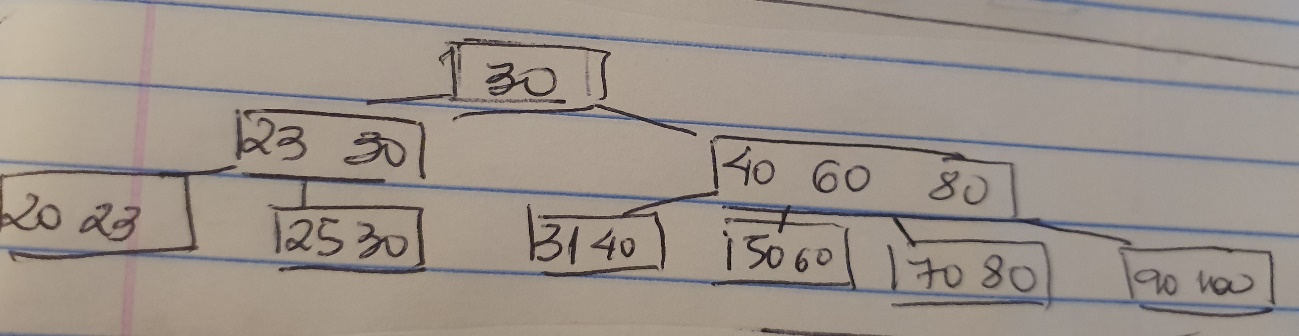 30
23 30
40 60 80
20 23
25 30
31 40
50 60
70 80
90 100